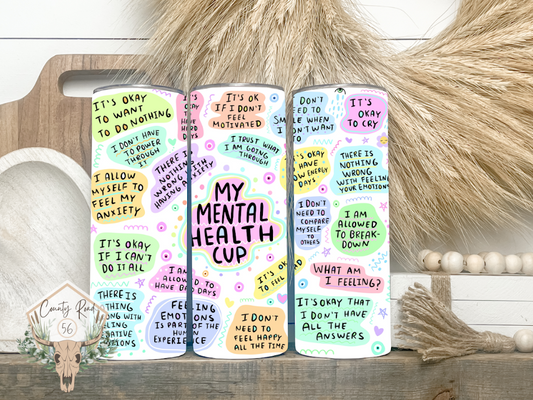 IT'S OKAY
TO WANT
TO DO NOTHING
I DON'T HAVE
TO POWER
THROUGH
IT
I ALLOW
MYSELF TO
FEEL MY
ANXIETY
IT'S OKAY
IF I CAN'T
DO IT ALL
THERE IS
THERE IS
NOTHING
WRONG WITH
HAVING ANXIETY
I AM
ALLOWED TO
HAVE BAD DAYS
FEELING
EMOTIONS
IS PART OF THE
HUMAN
EXPERIENCE
IT'S OK
IF I DON'T
FEEL
MOTIVATED
I TRUST WHAT
I AM GOING
THROUGH
MY
MENTAL
HEALTH
CUP
IT'S OK
TO FEEL
I DON'T
NEED TO
FEEL HAPPY
ALL THE TIME
DON'T
WHEN
IT'S OKAY
TO CRY
DAYS
THERE IS
NOTHING
WRONG
WITH FEELING
YOUR EMOTIONS
I DON'T
NEED TO
COMPARE
MYSELF
TO
OTHERS
I AM
ALLOWED
TO BREAK-
DOWN
WHAT AM
I FEELING?
IT'S OKAY THAT
I DON'T HAVE
ALL THE
ANSWERS
County Road
56